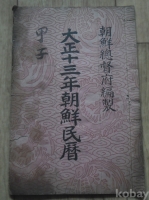 朝鮮總督府編製
大正十三年朝鮮民暦
甲子
kobay